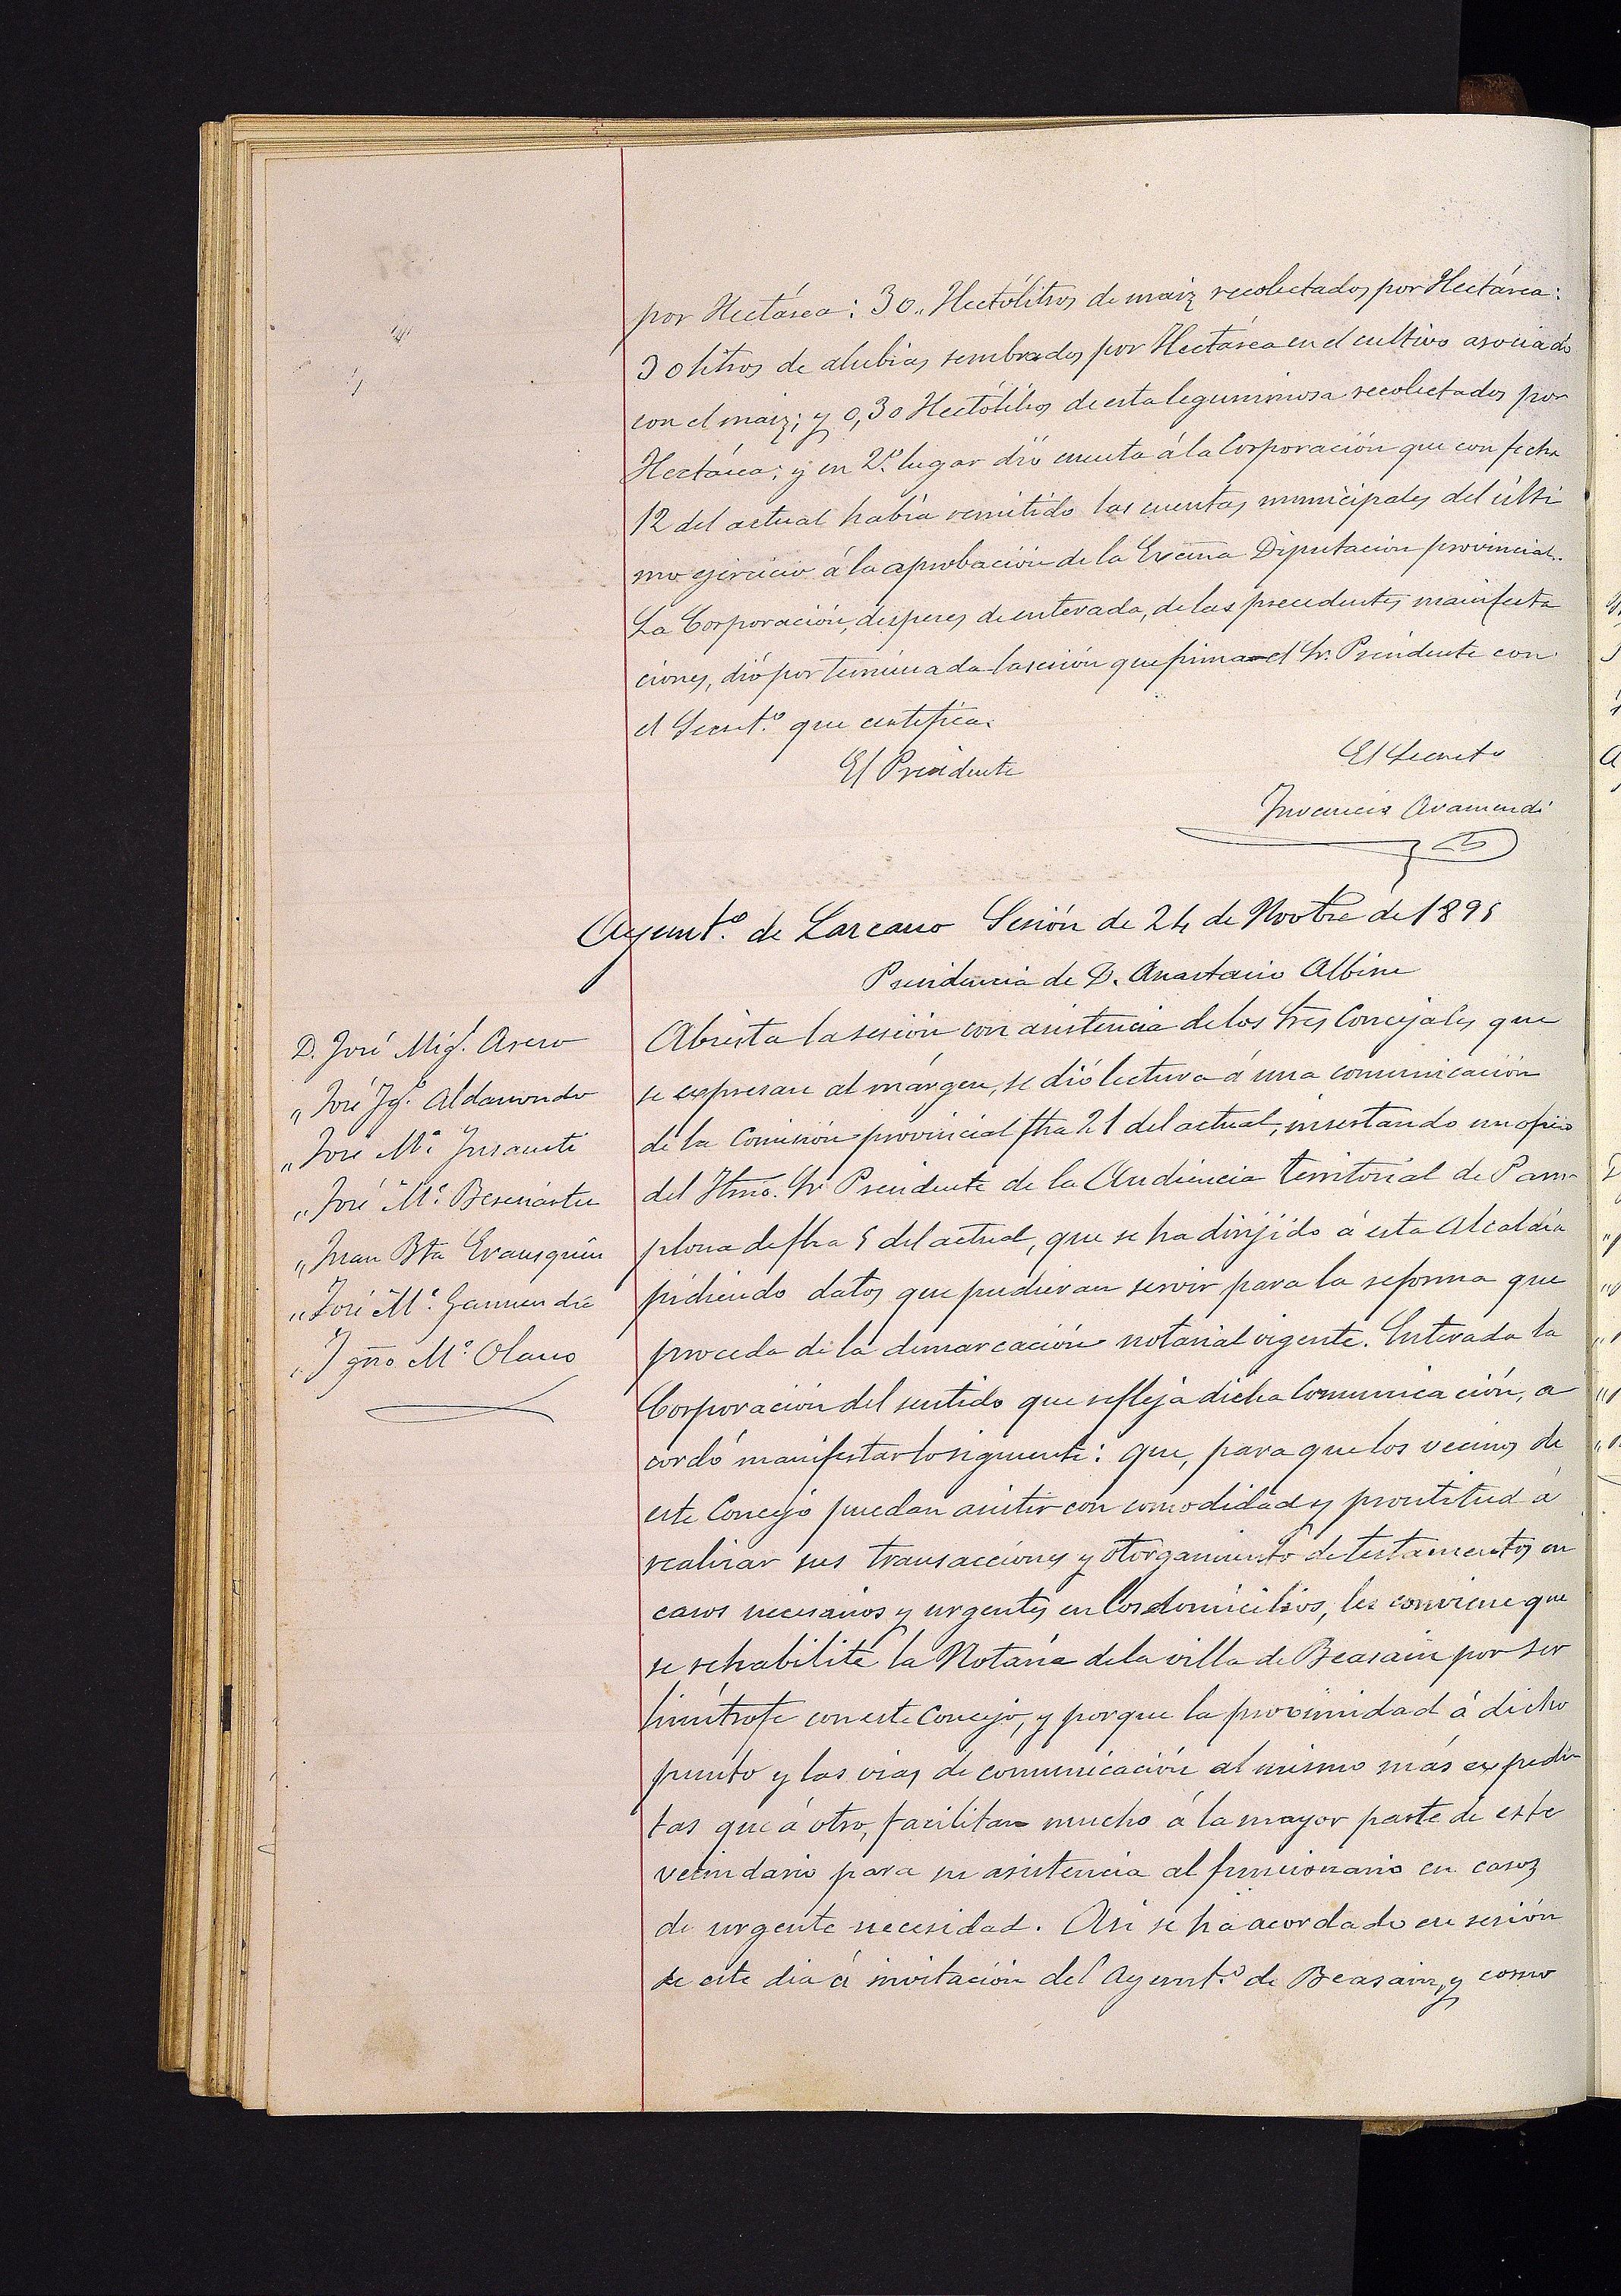 por Hectárea: 30,, Hectólitros de maiz recolectados por Hectárea:
30 litros de alubias sembrados por Hectárea en el cultivo asociado
con el maiz; y 0,30 Hectólitros de esta leguminosa recolectados por
Hectárea: y en 2º lugar dió cuenta á la Corporación que con fecha
12 del actual habia remitido las cuentas municipales del últi
mo ejercicio á la aprobación de la Excma Diputación provincial.
La Corporación, despues de enterada, de las precedentes manifesta
ciones, dió por terminada la sesión que firma el Sr. Presidente con
el Secretº que certifica.
El Presidente
El Secreto
Inocencio Aramendi
Ayuntº de Lazcano Sesión de 24 de Novbre de 1895
Presidencia de D. Anastasio Albisu
D. José Migl. Asero
" José Igº Aldasorondo
" José Mª Insausti
" José Mª Beresiartu
" Juan Bta Erausquin
" José Mª Garmendia
" Ignº Mª Olano
Abierta la sesión con asistencia de los Sres Concejales que
se expresan al márgen, se dió lectura á una comunicación
de la Comisión provincial fha 21 del actual, insertando un oficio
del Iltmo. Sr Presidente de la Audiencia territorial de Pam-
plona de fha 5 del actual, que se ha dirijido á esta Alcaldía
pidiendo datos que pudieran servir para la reforma que
proceda de la demarcación notarial vigente. Enterada la
Corporación del sentido que refleja dicha Comunicación, a
cordó manifestar lo siguiente: que, para que los vecinos de
este Concejo puedan asistir con comodidad y prontitud á
realizar sus transacciones y otorgamiento de testamentos en
casos necesarios y urgentes en los domicilios, les conviene que
se rehabilite la Notaria de la villa de Beasain por ser
limítrofe con este Concejo, y porque la proximidad á dicho
punto y las vias de comunicación al mismo más expedi
tas que á otro, facilitan mucho á la mayor parte de este
vecindario para su asistencia al funcionario en casos
de urgente necesidad. Asi se ha acordado en sesión
de este dia á invitación del Ayuntº de Beasain, y como